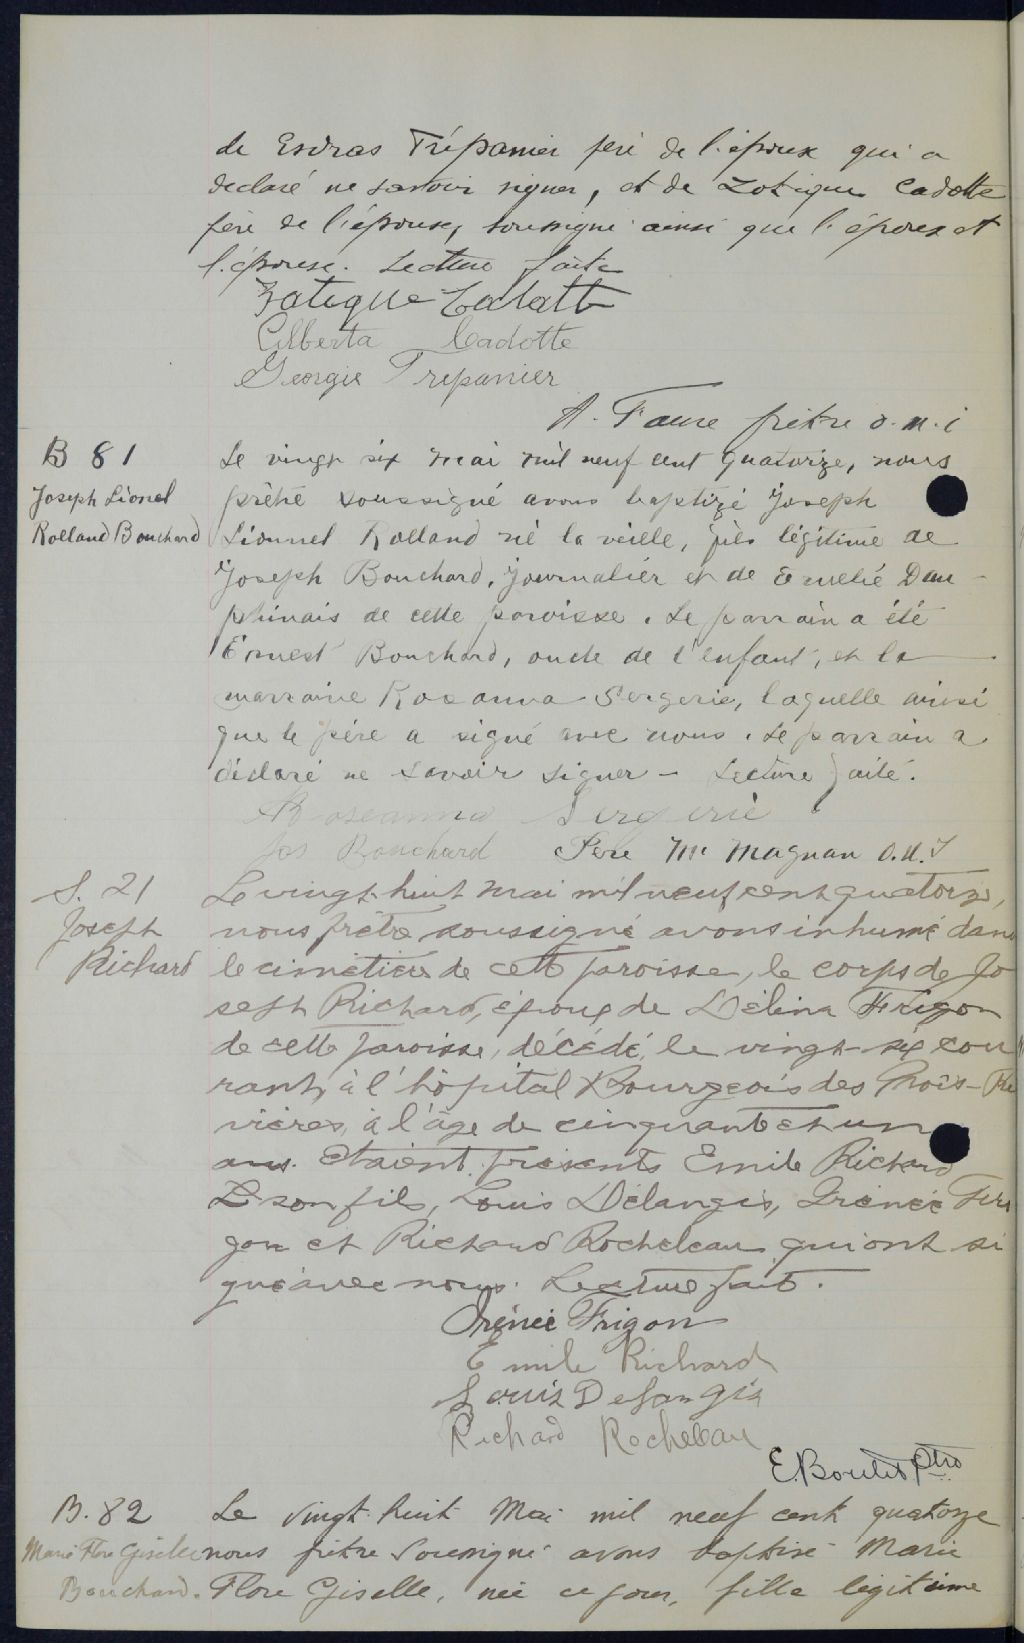 de Esdras Trépanier père de l'époux qui a
declaré ne savoir signer, et de Zotique Cadotte
père de l'épouse, soussigné ainsi que l'époux et
l'épouse. Lecture faite
Zotique Cadotte
Alberta Cadotte
Georgie Trepanier
A. Faure prêtre o.m.i
B 81
Joseph Lionel
Rolland Bouchard
Le vingt six mai mil neuf cent quatorze, nous
prêtre soussigné avons baptizé Joseph
Lionnel Rolland né la veille, fils légitime de
Joseph Bouchard, journalier et de Emélie Dau-
phinais de cette paroisse. Le parrain a été
Ernest Bouchard, oncle de l'enfant, et la
marraine Rosanna Sergerie, laquelle ainsi
que le père a signé avec nous. Le parrain a
déclaré ne savoir signer - Lecture faite.
Roseanna Sergerie
Jos Bouchard Père M. Magnan O.M.I
S. 21
Joseph
Richard
Le vingt-huit mai mil neuf cent quatorze,
nous prêtre soussigné avons inhumé dans
le cimetière de cette paroisse, le corps de Jo
seph Richard, époux de Délina Frigon
de cette paroisse, décédé, le vingt-six cou
rant, à l'hôpital Bourgeois des Trois-Ri
vières, à l'âge de cinquante et un
ans. Etaient présents Emile Richard
son fils, Louis Délangis, Irénée Fri
gon et Richard Rocheleau qui ont si
gné avec nous. Lecture faite.
Irénée Frigon
Emile Richard
Louis Delangis
Richard Rocheleau
E. Boulet Ptre
B. 82
Marie Flore Giselle
Bouchard.
Le vingt huit Mai mil neuf cent quatorze
nous prêtre soussigné avons baptisé Marie
Flore Giselle, née ce jour, fille légitime